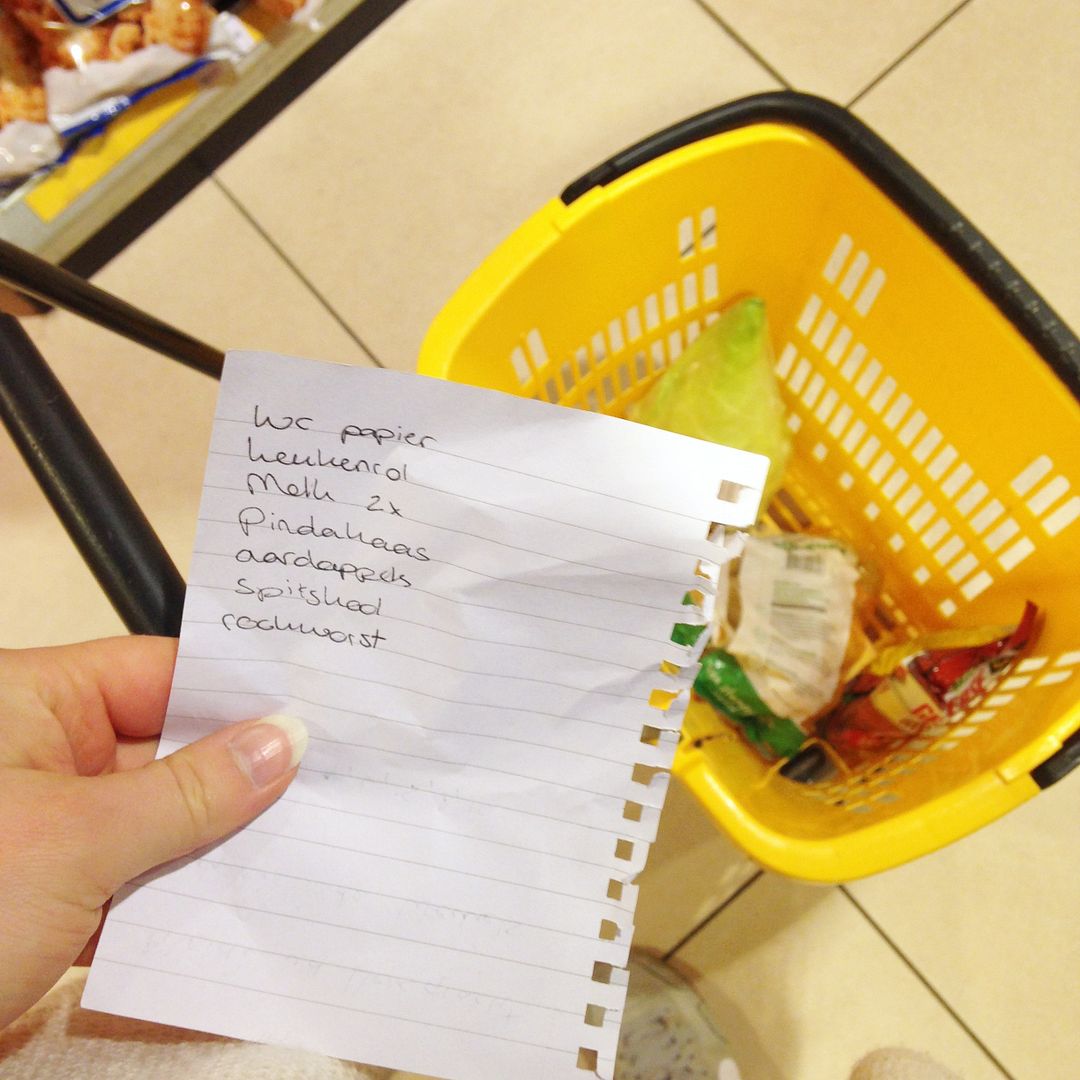 WC papier
keukenrol
Melk 2x
Pindakaas
aardappels
Spitskool
rookworst